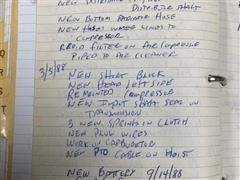 NEW BOTTOM RADIATOR HOSE
NEW HOSES WATER LINES TO
COMPRESSOR.
REPLD FILTER ON AIR COMPRESSOR
PIPED TO AIR CLEANER
3/5/88
NEW SHORT BLOCK
NEW HEAD LEFT SIDE
REMOUNTED COMPRESSOR
NEW INPUT SHAFT SEAL ON
TRANSMISSION
3 NEW SPRINGS IN CLUTCH
NEW PLUG WIRES
WORK ON CARBURETOR
NEW PTO CABLE ON HOIST
NEW BATTERY 9/14/88